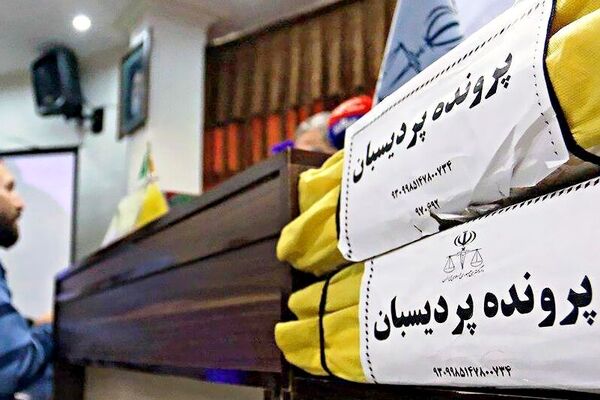 پرونده پردیسبان
۹۳۰۹۹۸۵۱۴۷۸۰۰۷۳۴
۹۷۰۶۹۲
پرونده پردیسبان
۹۳۰۹۹۸۵۱۴۷۸۰۰۷۳۴